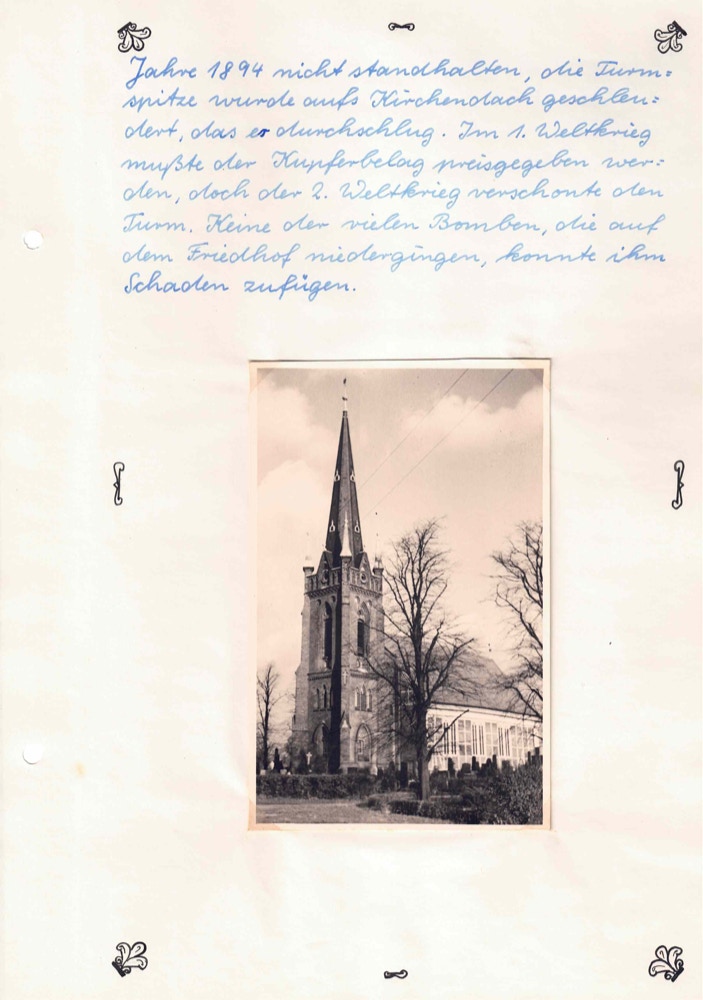 Jahre 1894 nicht standhalten, die Turm=
spitze wurde aufs Kirchendach geschleu=
dert, das er durchschlug. Im 1. Weltkrieg
mußte der Kupferbelag preisgegeben wer=
den, doch der 2. Weltkrieg verschonte den
Turm. Keine der vielen Bomben, die auf
dem Friedhof niedergingen, konnte ihm
Schaden zufügen.